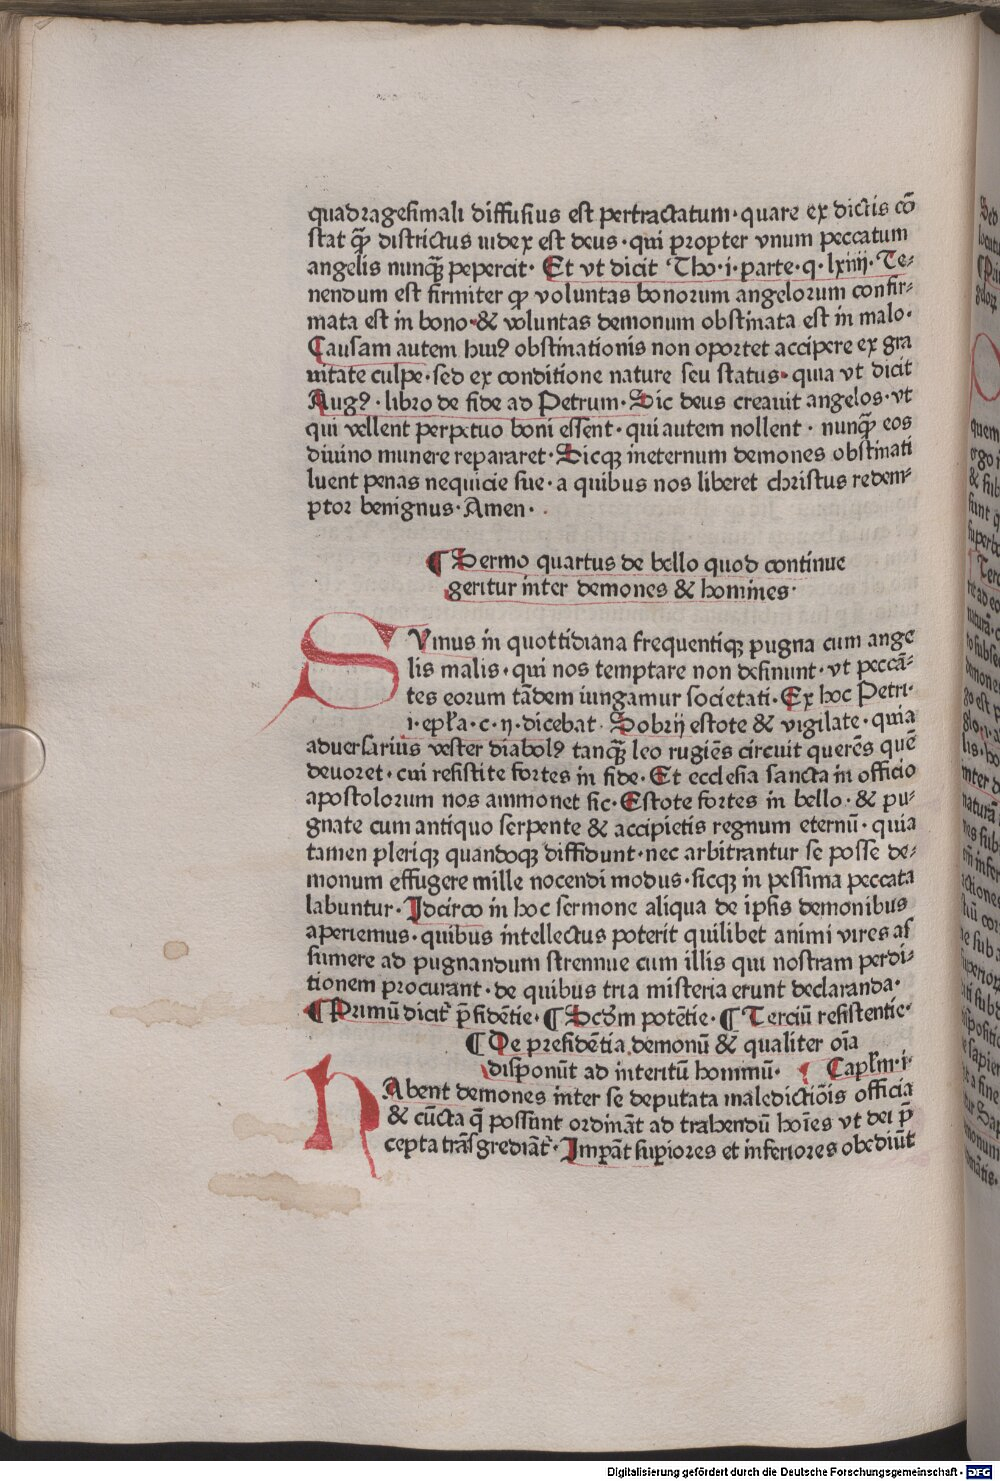 quadragesimali diffusius est pertractatum · quare ex dictis cō
stat qꝫ districtus iudex est deus · qui propter vnum peccatum
angelis nunqꝫ pepercit · Et vt dicit Tho · i · parte · q · lxiiij · Te-
nendum est firmiter qꝫ voluntas bonorum angelorum confir-
mata est in bono · & voluntas demonum obstinata est in malo ·
Causam autem huiꝰ obstinationis non oportet accipere ex gra
uitate culpe · sed ex conditione nature seu status · quia vt dicit
Augꝰ · libro de fide ad Petrum · Sic deus creauit angelos · vt
qui vellent perpetuo boni essent · qui autem nollent · nunqꝫ eos
diuino munere repararet · Sicqꝫ ineternum demones obstinati
luent penas nequicie sue · a quibus nos liberet christus redem-
ptor benignus · Amen ·
¶ Sermo quartus de bello quod continue
geritur inter demones & homines ·
SVmus in quottidiana frequentiqꝫ pugna cum ange
lis malis · qui nos temptare non desinunt · vt peccā-
tes eorum tādem iungamur societati · Ex hoc Petri ·
i · ep̄la · c · ꝟ · dicebat · Sobrij estote & vigilate · quia
aduersarius vester diabolꝰ tanqꝫ leo rugiēs circuit querēs quē
deuoret · cui resistite fortes in fide · Et ecclesia sancta in officio
apostolorum nos ammonet sic · Estote fortes in bello · & pu-
gnate cum antiquo serpente & accipietis regnum eternū · quia
tamen pleriqꝫ quandoqꝫ diffidunt · nec arbitrantur se posse de-
monum effugere mille nocendi modus · sicqꝫ in pessima peccata
labuntur · Idcirco in hoc sermone aliqua de ipsis demonibus
aperiemus · quibus intellectus poterit quilibet animi vires as
sumere ad pugnandum strennue cum illis qui nostram perdi-
tionem procurant · de quibus tria misteria erunt declaranda ·
¶ Primū dicit̄ p̄sidētie · ¶ Scdm̄ potētie · ¶ Terciū resistentie ·
¶ De presidētia demonū & qualiter oīa
disponūt ad interitū hominū · Capl̄m · i ·
HAbent demones inter se deputata maledictiōis officia
& cūcta q̄ possunt ordināt ad trahendū hoīes vt dei p̄
cepta trāsgrediāt̄ · Imꝑāt suꝑiores et inferiores obediūt